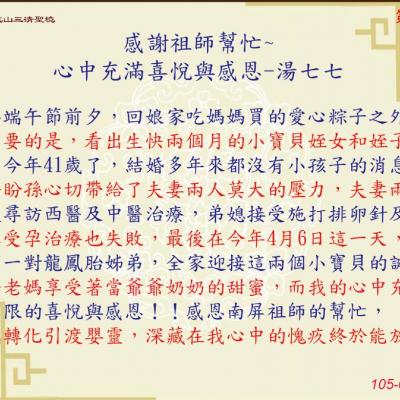 山三清聖境
感謝祖師幫忙~
心中充滿喜悅與感恩-湯七七
端午節前夕，回娘家吃媽媽買的愛心粽子之外
要的是，看出生快兩個月的小寶貝姪女和姪子
今年41歲了，結婚多年來都沒有小孩子的消息
盼孫心切帶給了夫妻兩人莫大的壓力，夫妻兩
尋訪西醫及中醫治療，弟媳接受施打排卵針及
受孕治療也失敗，最後在今年4月6日這一天，
一對龍鳳胎姊弟，全家迎接這兩個小寶貝的誕
老媽享受著當爺爺奶奶的甜蜜，而我的心中充
限的喜悅與感恩！！感恩南屏祖師的幫忙，
轉化引渡嬰靈，深藏在我心中的愧疚終於能放
105-